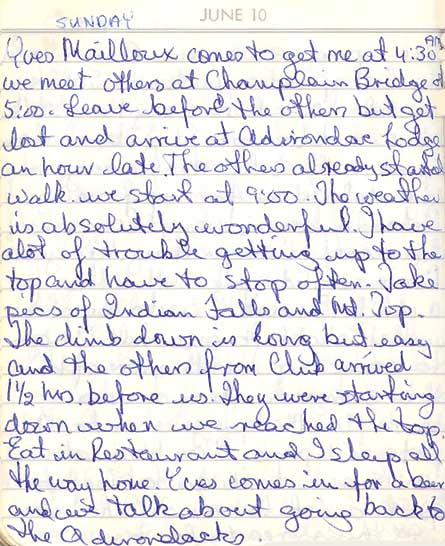 SUNDAY JUNE 10
Yves Mailloux comes to get me at 4:30 AM.
we meet others at Champlain Bridge at
5:00. Leave before the others but get
lost and arrive at Adirondac Lodge
an hour late. The others already started
walk. we start at 9:00. The weather
is absolutely wonderful. I have
alot of trouble getting up to the
top and have to stop often. Take
pics of Indian Falls and Mt. Top.
The climb down is long but easy
and the others from Club arrived
1 1/2 hrs. before us. They were starting
down when we reached the top.
Eat in Restaurant and I sleep all
the way home. Yves comes in for a beer
and we talk about going back to
the Adirondacks.